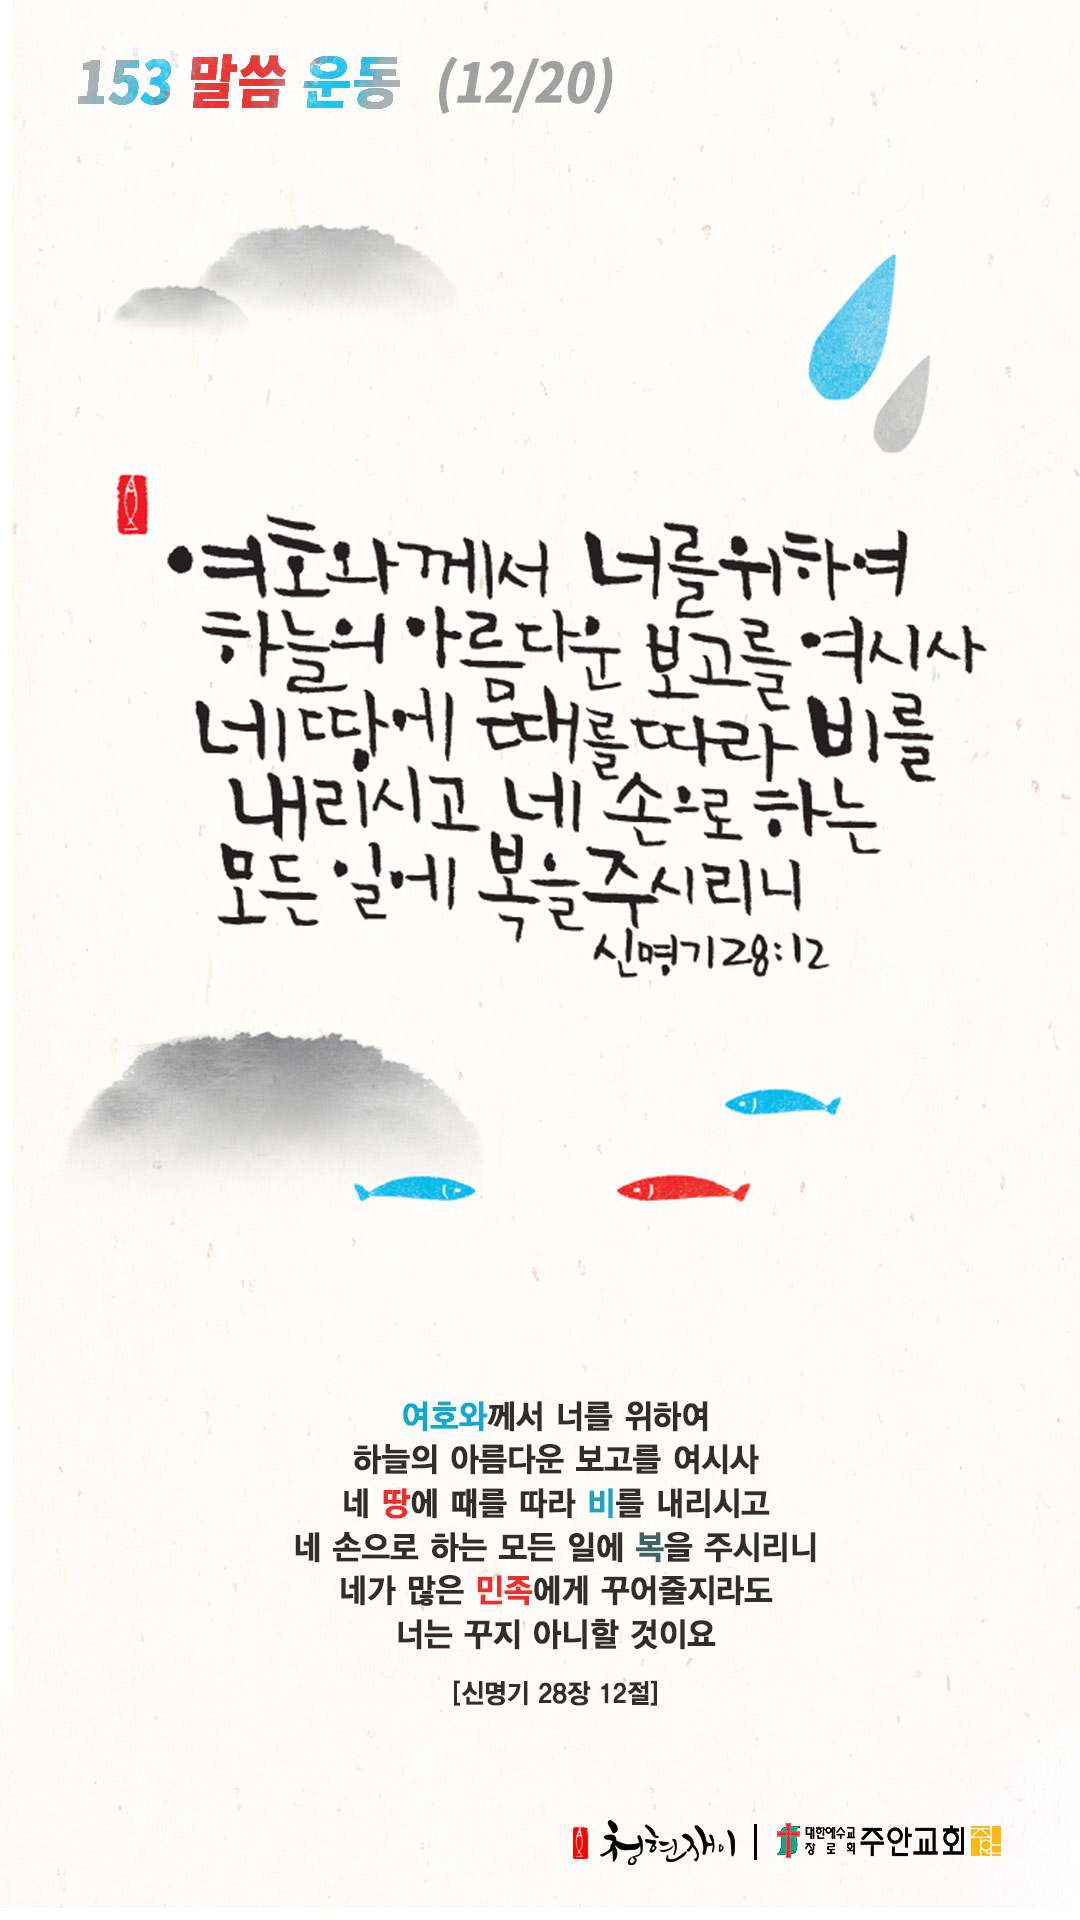 153 말씀 운동 (12/20)
여호와께서 너를위하여
하늘의 아름다운 보고를 여시사
네 땅에 때를 따라 비를
내리시고 네 손으로 하는
모든 일에 복을 주시리니
신명기 28:12
여호와께서 너를 위하여
하늘의 아름다운 보고를 여시사
네 땅에 때를 따라 비를 내리시고
네 손으로 하는 모든 일에 복을 주시리니
네가 많은 민족에게 꾸어줄지라도
너는 꾸지 아니할 것이요
[신명기 28장 12절]
청현재이 | 대한예수교 장로회 주안교회 주안